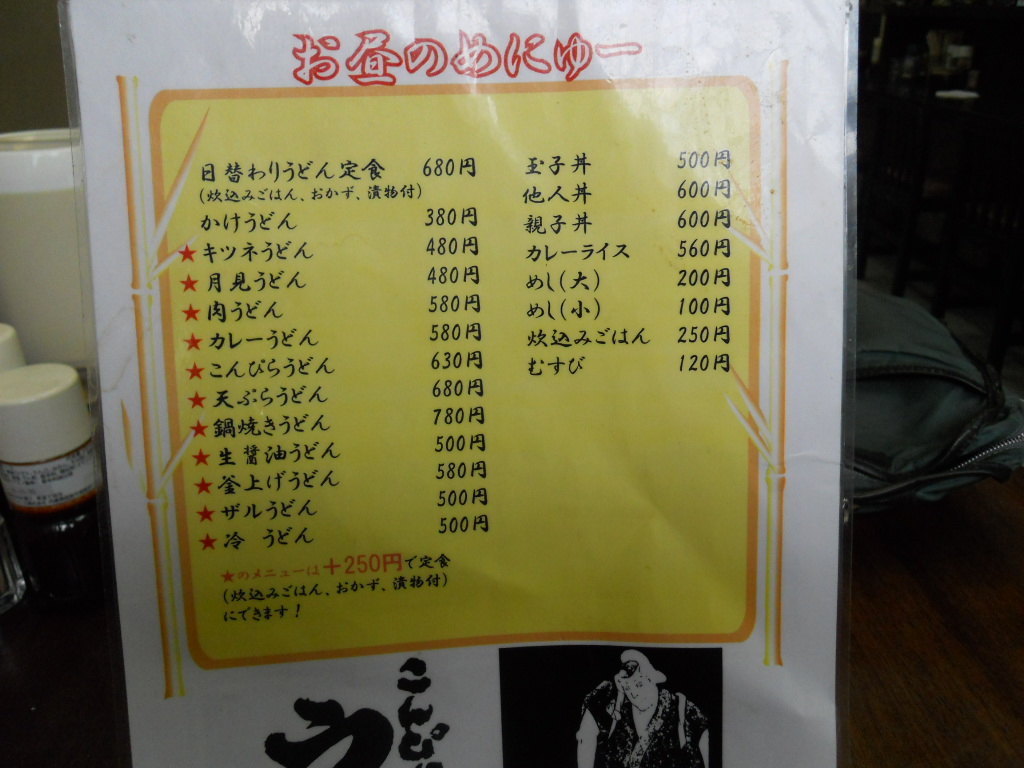 お昼のめにゅー
日替わりうどん定食 680円
(炊込みごはん、おかず、漬物付)
かけうどん 380円
★キツネうどん 480円
★月見うどん 480円
★肉うどん 580円
★カレーうどん 580円
★こんぴらうどん 630円
★天ぷらうどん 680円
★鍋焼きうどん 780円
★生醤油うどん 500円
★釜上げうどん 580円
★ザルうどん 500円
★冷 うどん 500円
★のメニューは+250円で定食
(炊込みごはん、おかず、漬物付)
にできます!
玉子丼 500円
他人丼 600円
親子丼 600円
カレーライス 560円
めし(大) 200円
めし(小) 100円
炊込みごはん 250円
むすび 120円
こんぴ
う